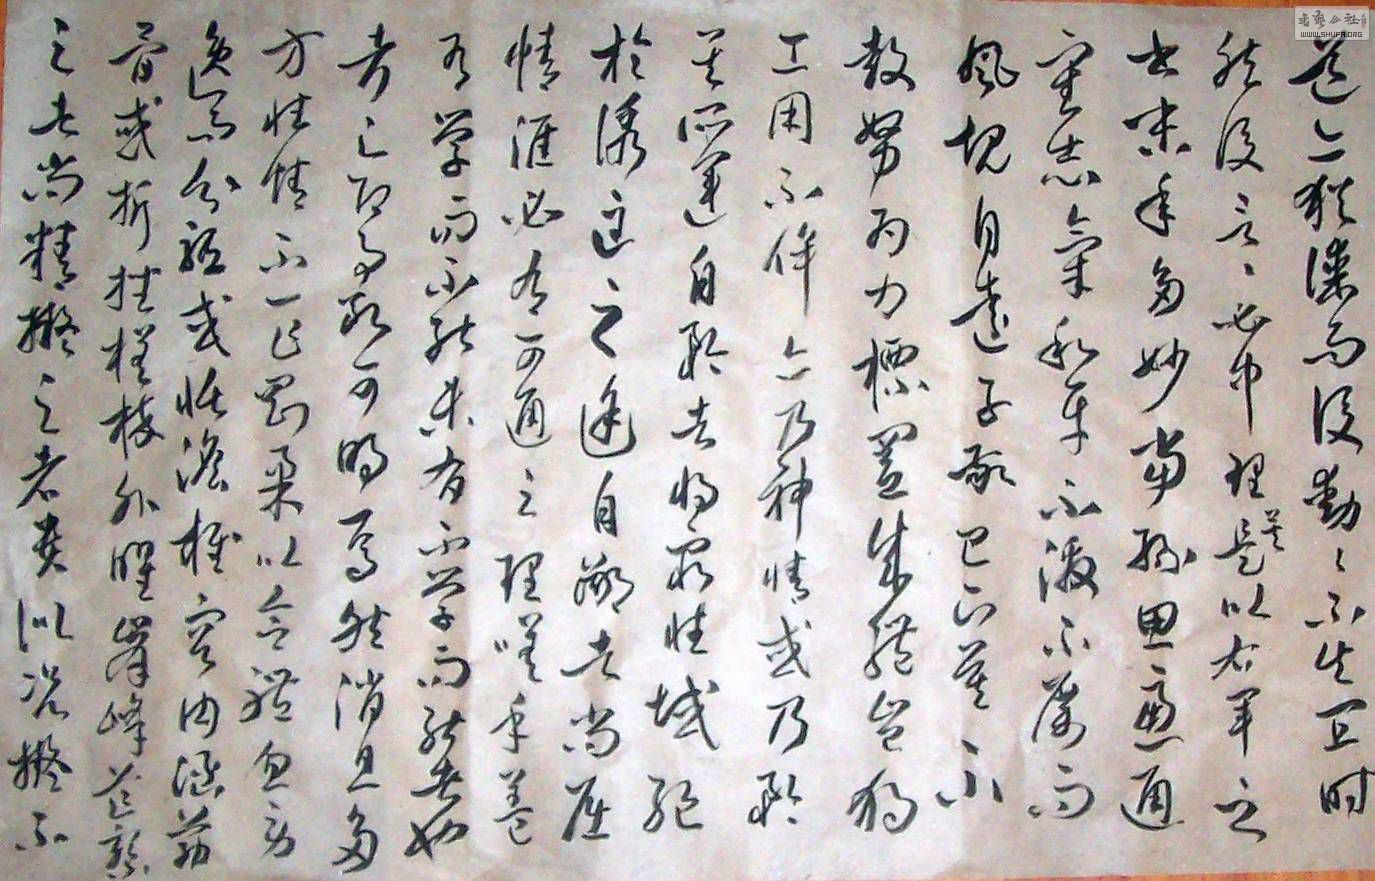 道亦猶謀而後動〻不失宜時
然後言〻必中理矣是以右軍之
書末年多妙當緣思慮通
審志氣和平不激不厲而
風規自遠子敬已下莫不
鼓努為力標置成體豈獨
工用不侔亦乃神情或乃矜
其所運自矜者將窮性域絕
於誘進之途自鄙者尚屈
情涯必有可通之理嗟乎蓋
有學而不能未有不學而能者也
考之即事斷可明焉然消息多
方性情不一乍剛柔以合體忽勞
逸而分驅或恬澹雍容內涵筋
骨或折挫槎枿外曜峯峰芒察
之者尚精擬之者貴似況擬不
書藝公社
WWW.SHUFA.ORG